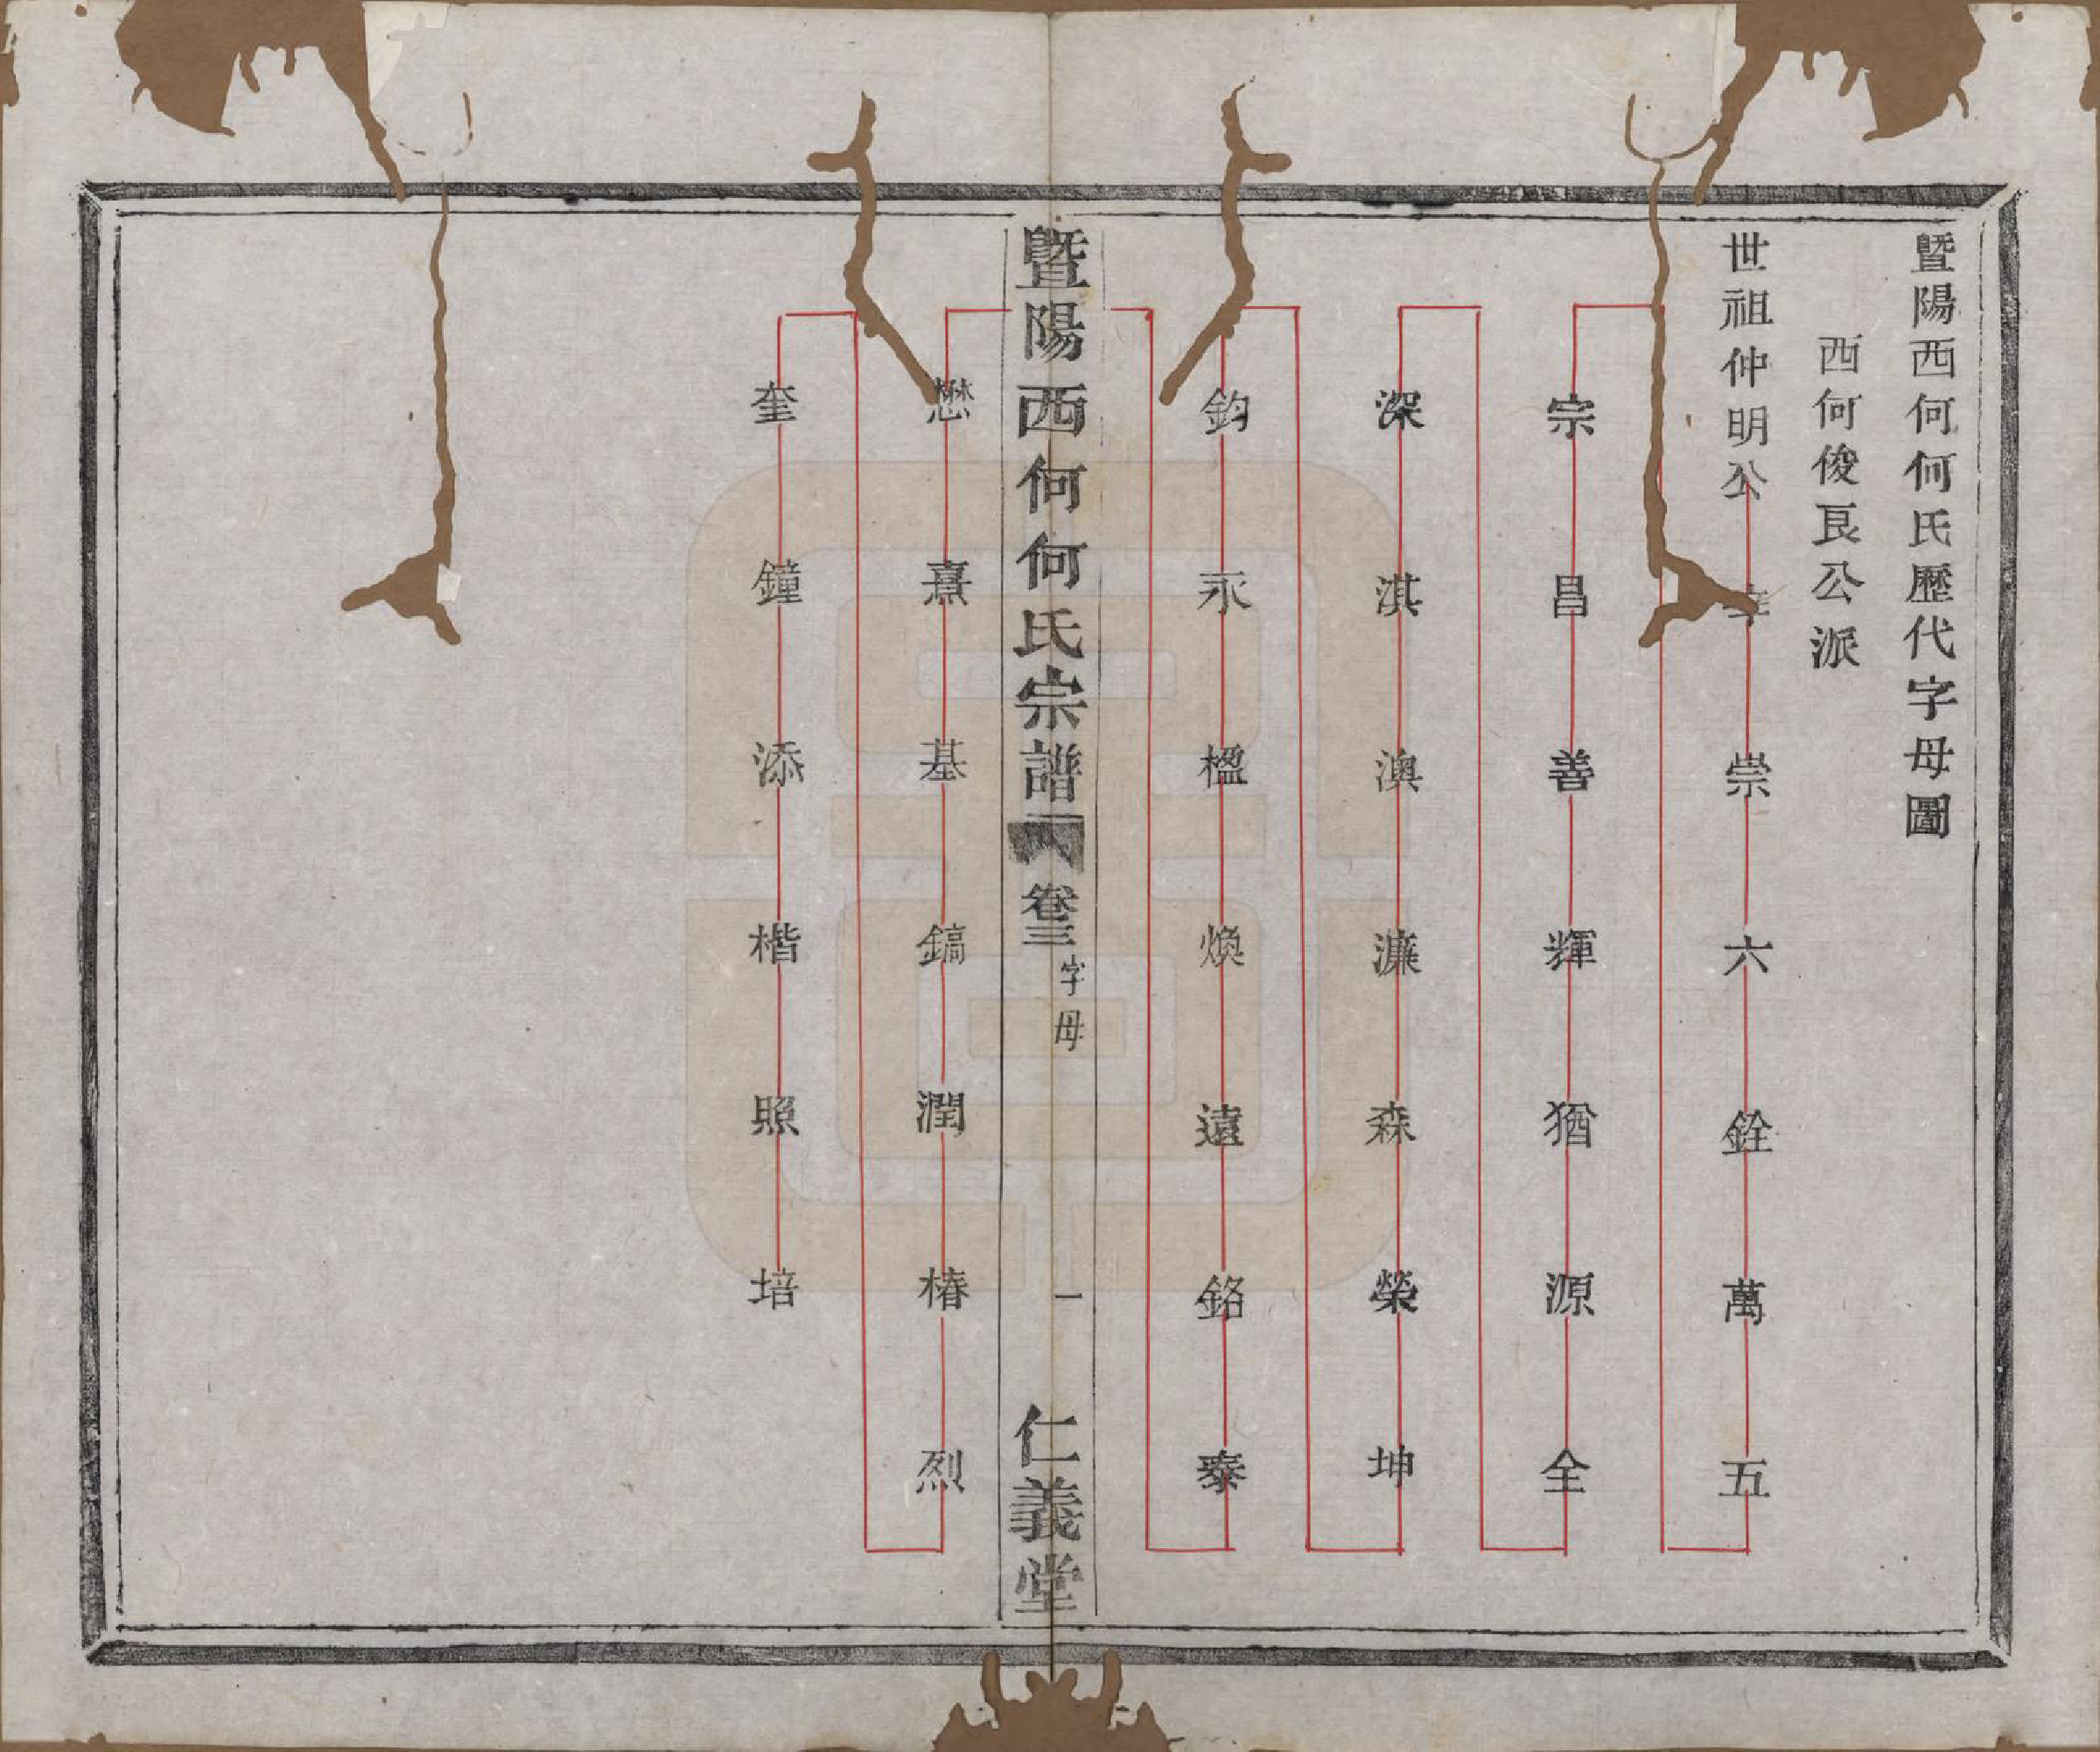 暨陽西何何氏歷代字母圖
西何俊良公派
世祖仲明公
崇六銓萬五
宗昌善輝猶源全
深淇澳濂森榮坤
鈞永楹煥遠銘泰
暨陽西何何氏宗譜
卷三
字母
一
仁義堂
懋熹基鎬潤椿烈
奎鐘添楷照培